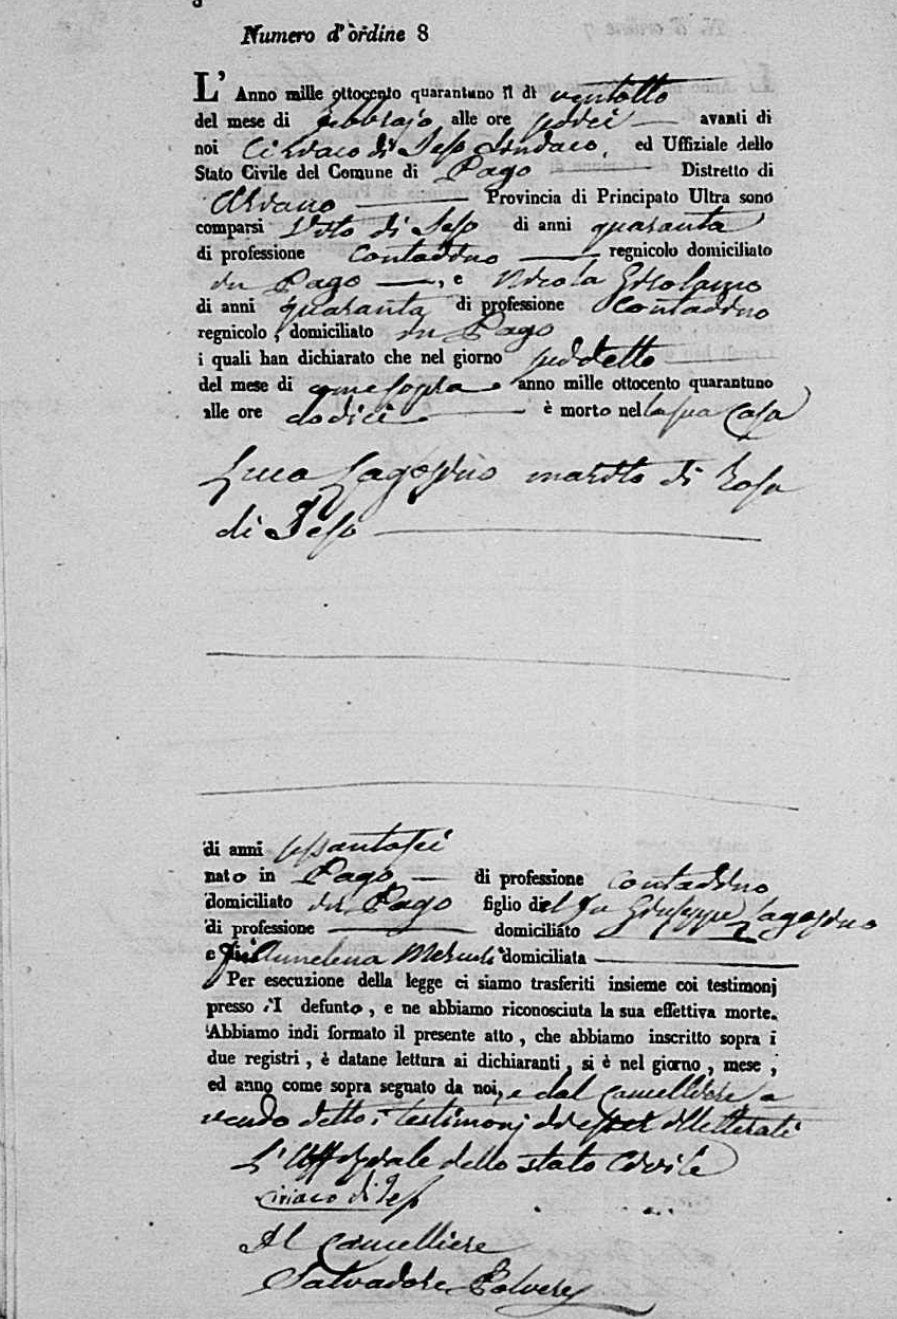 Numero d'ordine 8
L' Anno mille ottocento quarantuno il dì ventotto
del mese di Febbrajo alle ore sedici avanti di
noi Ciriaco di Jeso Sindaco, ed Uffiziale dello
Stato Civile del Comune di Pago Distretto di
Ariano Provincia di Principato Ultra sono
comparsi Vito di Jeso di anni quaranta
di professione Contadino regnicolo domiciliato
in Pago, e Nicola Girolamo
di anni quaranta di professione Contadino
regnicolo, domiciliato in Pago
i quali han dichiarato che nel giorno suddetto
del mese di come sopra anno mille ottocento quarantuno
alle ore dodici è morto nella sua Casa
Luca Lagozzino marito di Rosa
di Jeso
di anni sessantasei
nato in Pago di professione Contadino
domiciliato in Pago figlio del fu Giuseppe Lagozzino
di professione domiciliato
e fu Annelena domiciliata
Per esecuzione della legge ci siamo trasferiti insieme coi testimonj
presso il defunto, e ne abbiamo riconosciuta la sua effettiva morte.
Abbiamo indi formato il presente atto, che abbiamo inscritto sopra i
due registri, è datane lettura ai dichiaranti, si è nel giorno, mese,
ed anno come sopra segnato da noi, e dal Cancelliere a
vendo detto i testimonj di esser illetterati
L'Uffiziale dello stato Civile
Ciriaco di Jeso
Il Cancelliere
Salvadore Polvere